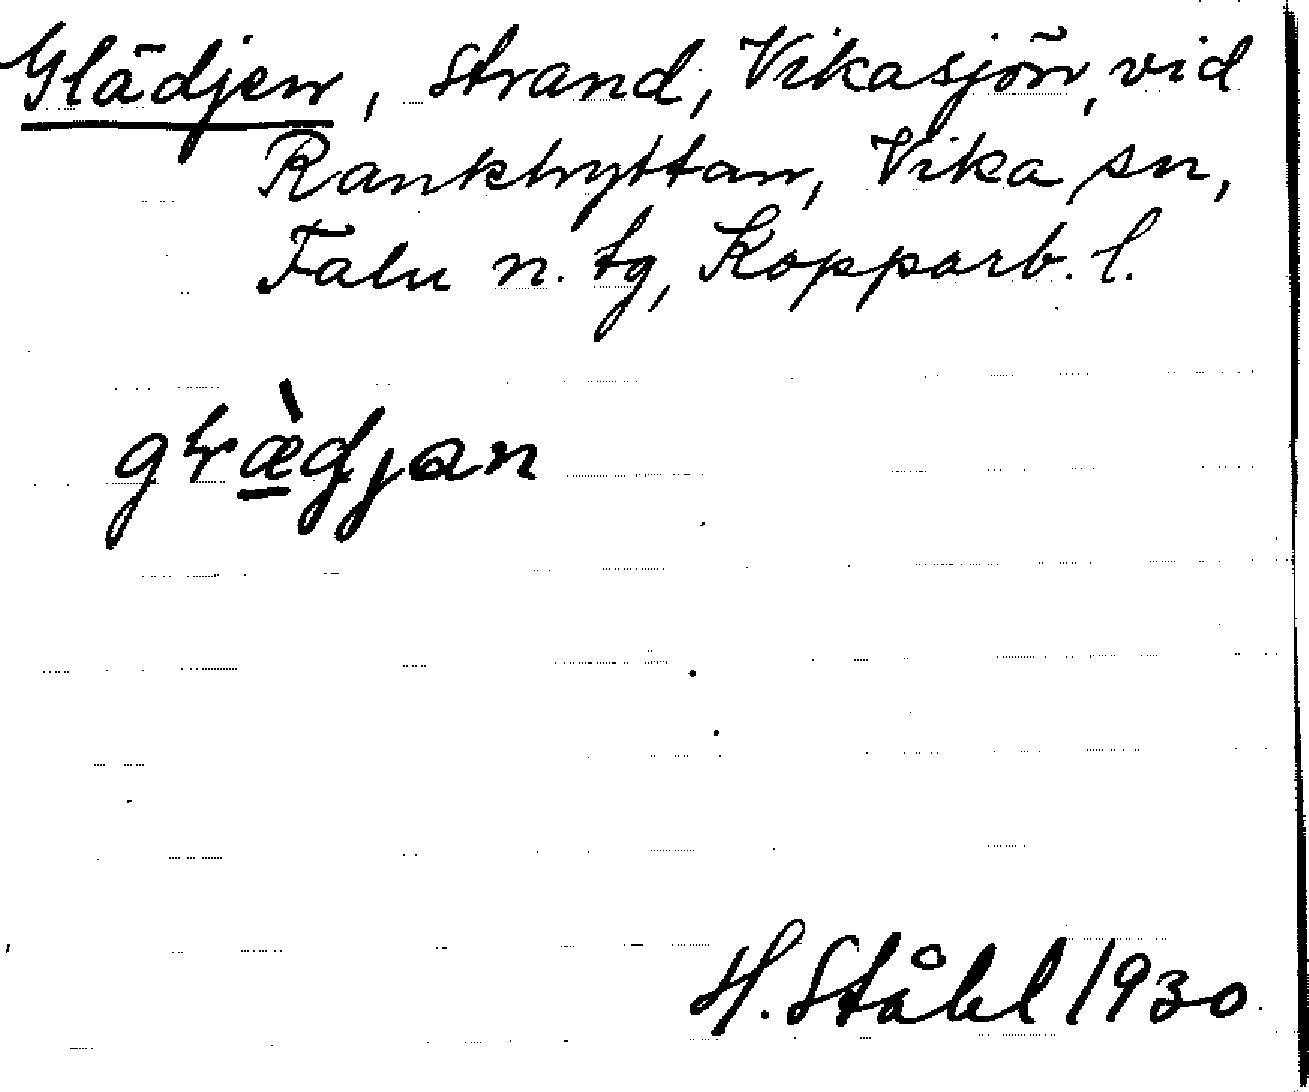 Glädjen, strand, Vikasjön, vid
Rankhyttan, Vika sn,
Falu n. tg, Kopparb. l.
H. Ståhl 1930.